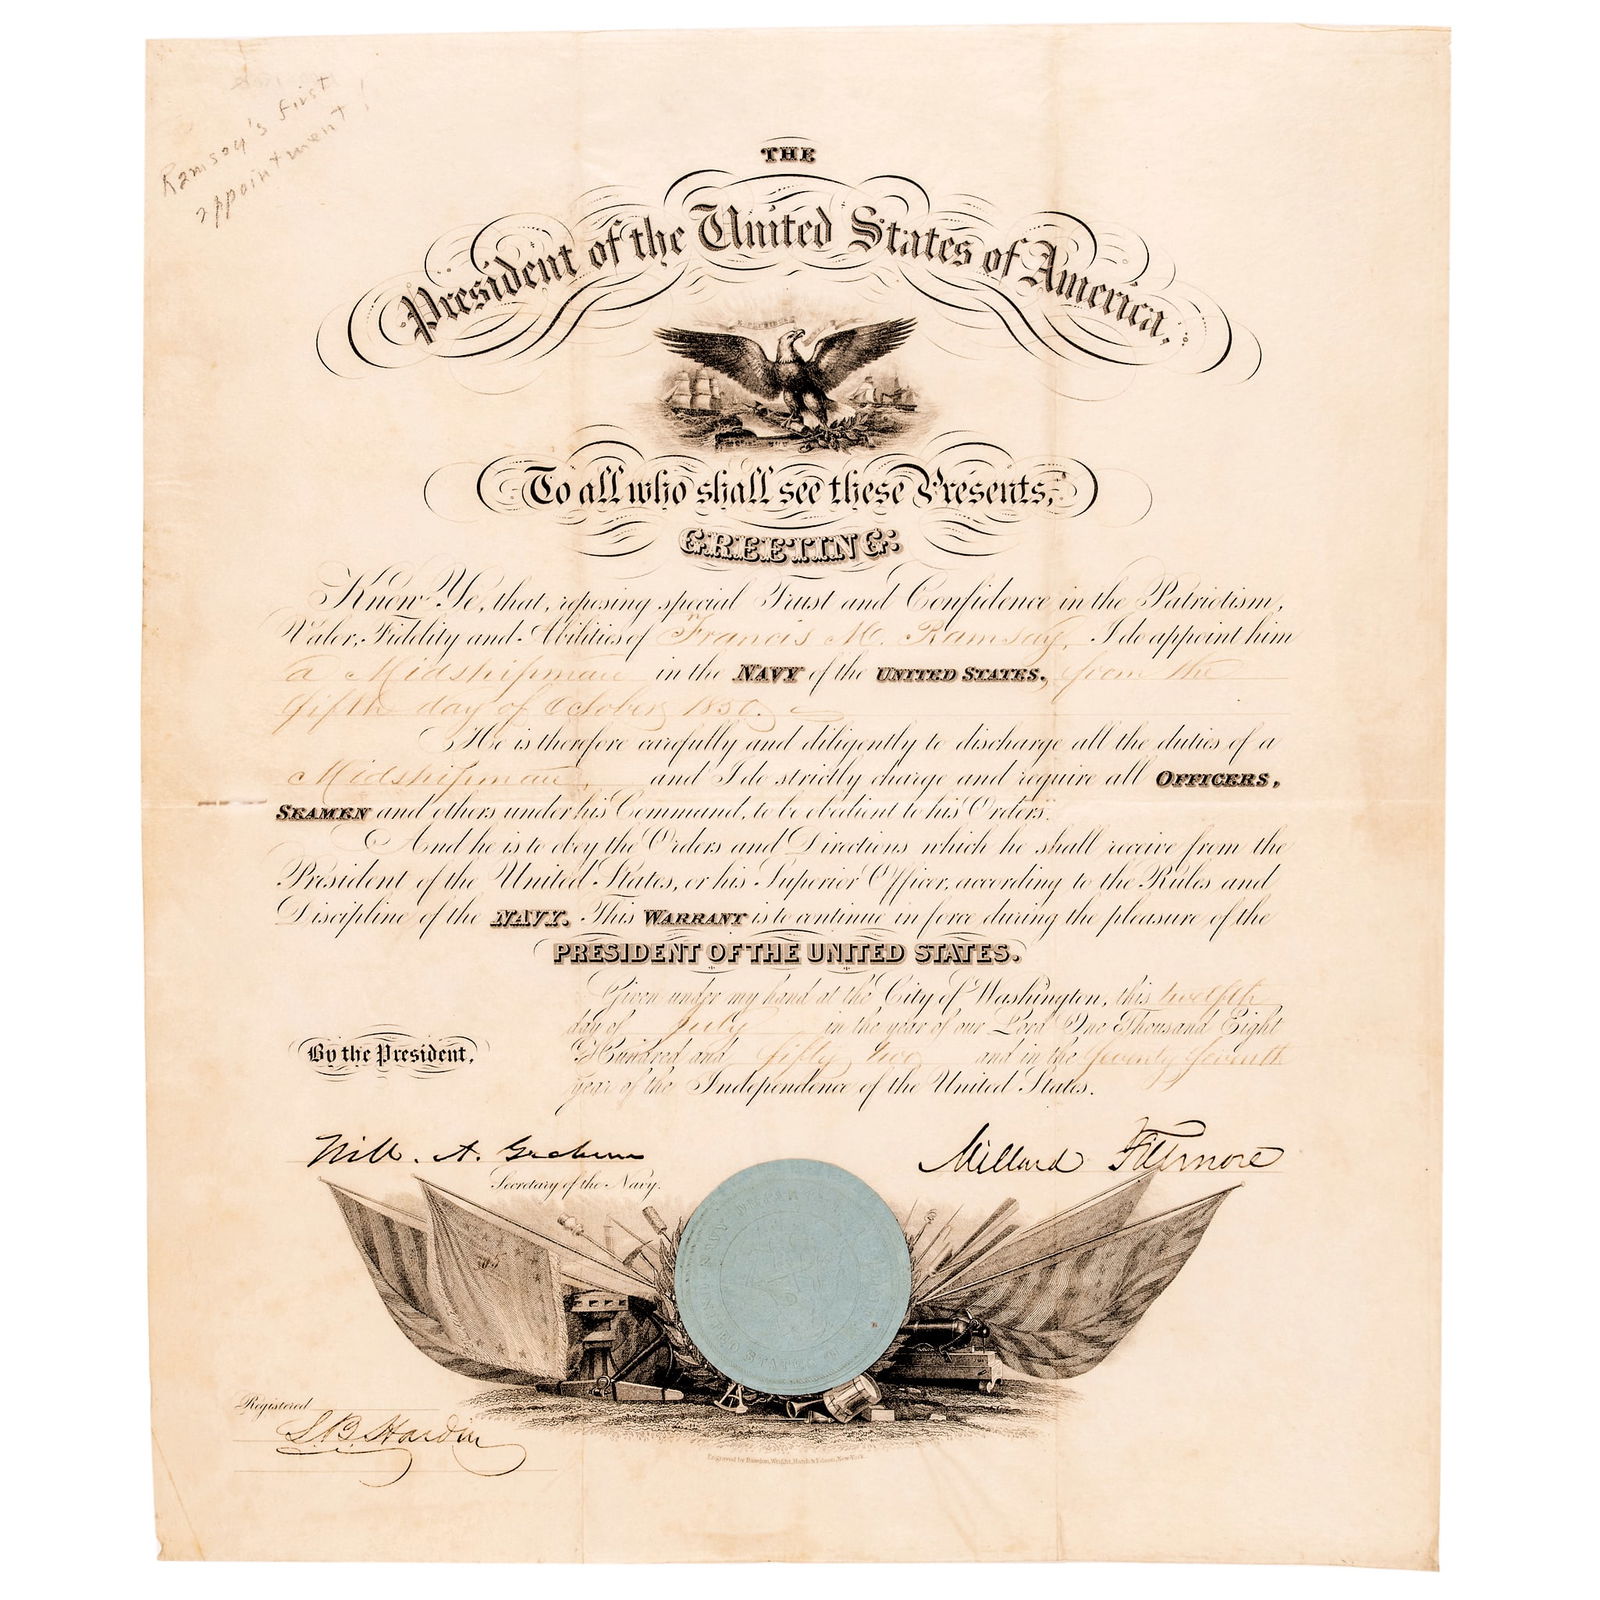 Ramsay's first
appointment!
THE
President of the United States of America.
To all who shall see these Presents,
GREETING:
Know Ye, that, reposing special Trust and Confidence in the Patriotism,
Valor, Fidelity and Abilities of Francis M. Ramsay, I do appoint him
a Midshipman in the NAVY of the UNITED STATES, from the
fifth day of October, 1850.
He is therefore carefully and diligently to discharge all the duties of a
Midshipman, and I do strictly charge and require all OFFICERS,
SEAMEN and others under his Command, to be obedient to his Orders.
And he is to obey the Orders and Directions which he shall receive from the
President of the United States, or his Superior Officer, according to the Rules and
Discipline of the NAVY. This WARRANT is to continue in force during the pleasure of the
PRESIDENT OF THE UNITED STATES.
Given under my hand at the City of Washington, this twelfth
day of July, in the year of our Lord One Thousand Eight
Hundred and fifty two, and in the Seventy Seventh
year of the Independence of the United States.
By the President,
Will. A. Graham
Secretary of the Navy.
Millard Fillmore
NAVY DEPARTMENT
UNITED STATES OF
Registered
S.B. Hardin
Engraved by Rawdon, Wright, Hatch & Edson, New-York.